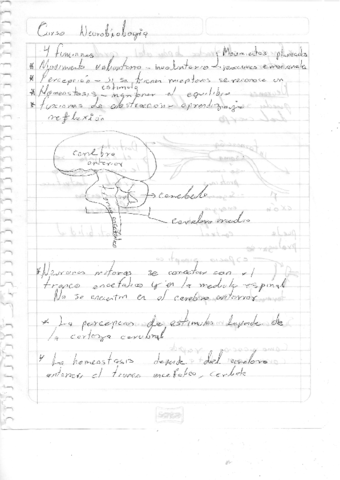 Curso Neurobiología
4 funciones
* Movimiento voluntario - involuntario - reacciones emocionales
* Percepción - si se tienen receptores se reconoce un
estímulo
* Homeostasis - mantener el equilibrio
* funciones de abstracción - aprendizaje
reflexión
cerebro
anterior
cerebelo
cerebro medio
* Neuronas motoras se conectan con el
tronco encefálico y en la medula espinal
No se encuentran en el cerebro anterior
* La percepción de estímulos depende de
la corteza cerebral
* La homeostasis depende del cerebro
anterior el tronco encefálico, cerebelo